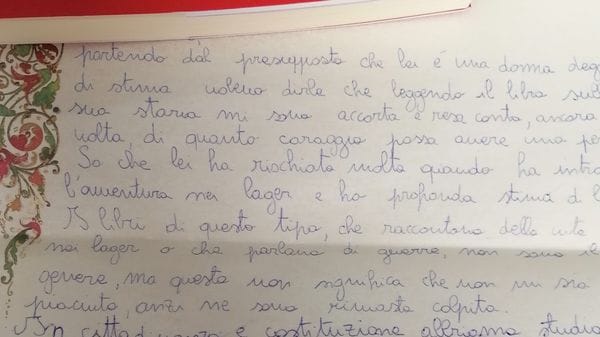 partendo dal presupposto che lei è una donna deg
di stima volevo dirle che leggendo il libro sull
sua storia mi sono accorta e resa conto, ancora
volta, di quanto coraggio possa avere una pe
So che lei ha rischiato molto quando ha intr
l'avventura nei lager e ho profonda stima di l
I libri di questo tipo, che raccontano della vita
nei lager o che parlano di guerre, non sono il
genere, ma questo non significa che non mi sia
piaciuto, anzi ne sono rimasta colpita.
In cittadinanza e costituzione abbiamo studia